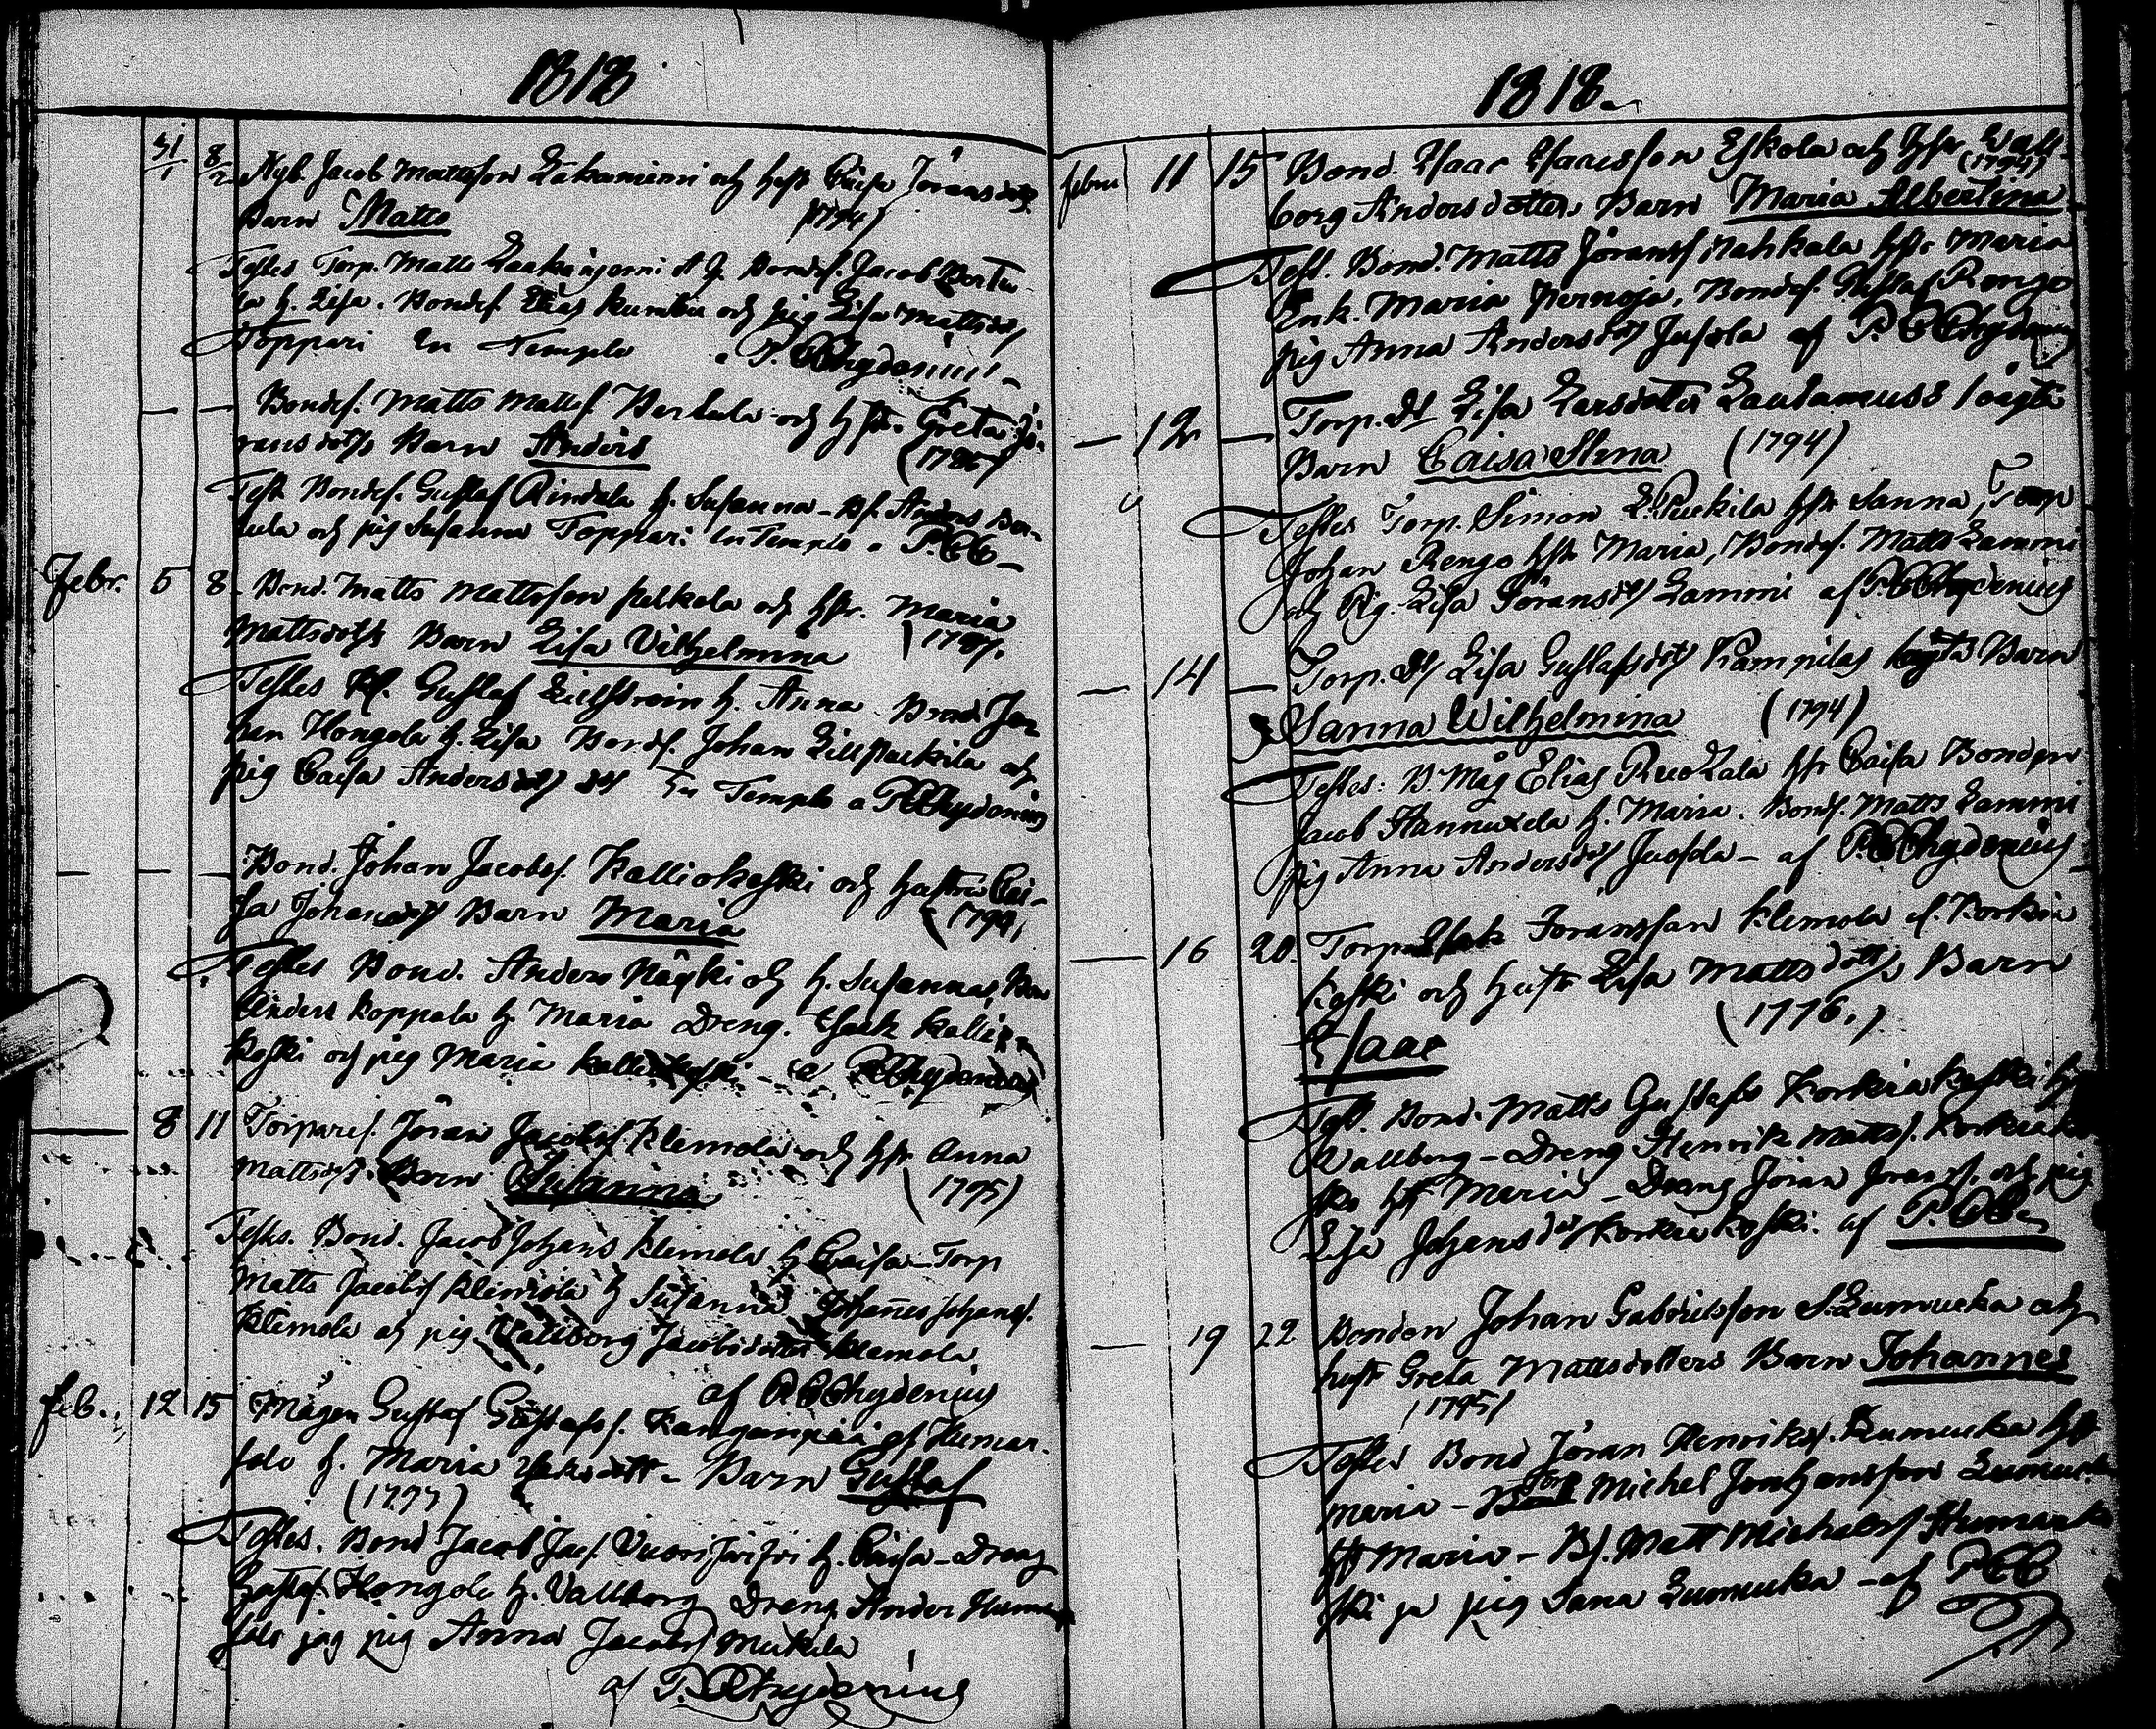 1818
31/1 8/2 Nyb. Jacob Mattsson Lakaniemi och hust Caisa Jöransdotr
Barn Matts (1794)
Testes Torp. Matts Laakaniemi Bondes. Jacob Pertu
la h. Lisa. Bondes. Elias och pig Lisa Mattsdr
Toppari In Templo a P. Chydenius
— — Bondes. Matts Mattss. Pertula och hstr. Greta Jö-
ransdotrs Barn Anders (1785)
Test. Bondes. Gustaf Rindala h. Susanna - Bs. Anders Per-
tula och pig Susanna Toppari In Templo a P. C
Febr. 5 8 Bond. Matts Mattsson Palkola och hstr. Maria
Mattsdotrs Barn Lisa Vilhelmina (1787.
Testes Gustaf Lillström h. Anna Bond. Jo-
han Hongola h. Lisa Bondes. Johan Lillpuckila och
pig Caisa Andersdotr In Templo a P Chydenius
— — — Bond. Johan Jacobss. Kalliokoski och hustru Cai-
sa Johansdotr Barn Maria (1794)
Testes Bond. Anders Näykki och h. Susanna, Bon
Anders Koppala h. Maria Dreng. Isack Kallio
koski och pig Maria Kalliokoski - a P Chydenius
— 8 11 Torpares. Jöran Jacobss. Klemola och hstr Anna
Mattsdotr. Barn Susanna (1795)
Testes. Bond. Jacob Johans Klemola h Caisa - Torp
Matts Jacobss Klemola h Susanna Johannes Johanss.
Klemola och pig. Vallborg Jacobsdotter Klemola
af P Chydenius
feb. 12 15 Mågen Gustaf Gustafss. Kangaspää af Humar-
salo h. Maria Isaksdotr - Barn Gustaf
(1777)
Testes. Bond Jacob Jacs. Vuorijärvi h. Caisa - Dreng
Gustaf Hongola h. Vallborg Dreng Ander Humar
salo jag pig Anna Jacobs Mickila
af P. Chydenius
1818.
febru 11 15 Bond. Isaac Isacsson Eskola och hstr Wall-
borg Andersdotters Barn Maria Albertina (1794)
Test. Bond. Matts Jöranss Nahkala hstr Maria
Enk. Maria Pernoja, Bondes. Gustaf Rengo
pig Anna Andersdotr Jusola af P. Chydenius
— 12 — Torp. Dtr Lisa Larsdoter Lautamuss oägta
Barn Caisa Stina (1794)
Testes Torp. Simon L. Puckila hstr Sanna, Torp
Johan Rengo hstr Maria, Bondes. Matts Lammi
och Pig. Lisa Jöransdr Lammi af P. Chydenius
— 14 — Torp. Dr Lisa Gustafsdotr Kampilas oägta Barn
Sanna Wilhelmina (1794)
Testes: B. Måg Elias Ruokala hstr Caisa Bonden
Jacob Hannuxela h. Maria. Bonds. Matts Lammi
pig Anna Andersdotr Jusola - af P. Chydenius
— 16 20. Torp. Isak Joransson Klemola af. Korkia
koski och hustr Lisa Mattsdotrs Barn
(1776.)
Isaac
Test. Bond. Matts Gustafss Korkiakoski h
Wallborg - Dreng Henrik Mattss. Korkiako
ski hstr Maria - Dreng Jöran Jöranss. och pig
Lisa Johansdotr Korkiakoski. af P. C
— 19 22 Bonden Johan Gabrielsson S. Lumucka och
hust Greta Mattsdotters Barn Johannes
(1795)
Testes Bond Jöran Henrikss. Lumucka hstr
Maria - Torp Michel Johansson Lumucka
hstr Maria - Bs. Matt Michaelss
ski ja pig Sana Lumucka - af P C